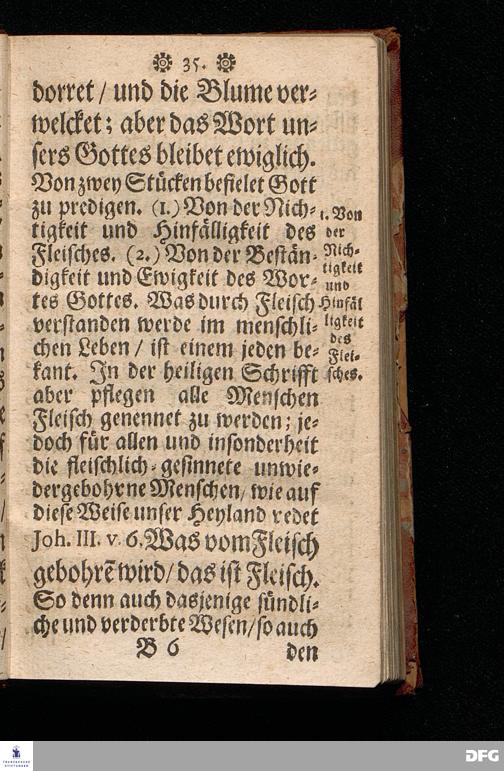 35.
dorret / und die Blume ver-
welcket; aber das Wort un-
sers Gottes bleibet ewiglich.
Von zwey Stücken befielet Gott
zu predigen. (1.) Von der Nich-
tigkeit und Hinfälligkeit des
Fleisches. (2.) Von der Bestän-
digkeit und Ewigkeit des Wor-
tes Gottes. Was durch Fleisch
verstanden werde im menschli-
chen Leben / ist einem jeden be-
kant. In der heiligen Schrifft
aber pflegen alle Menschen
Fleisch genennet zu werden; je-
doch für allen und insonderheit
die fleischlich-gesinnete unwie-
dergebohrne Menschen, wie auf
diese Weise unser Heyland redet
Joh. III. v. 6. Was vom Fleisch
gebohrē wird / das ist Fleisch.
So denn auch dasjenige sündli-
che und verderbte Wesen / so auch
B 6
den
1. Von
der
Nich-
tigkeit
und
Hinfäl
ligkeit
des
Flei-
sches.
FRANCKESCHE
STIFTUNGEN
DFG